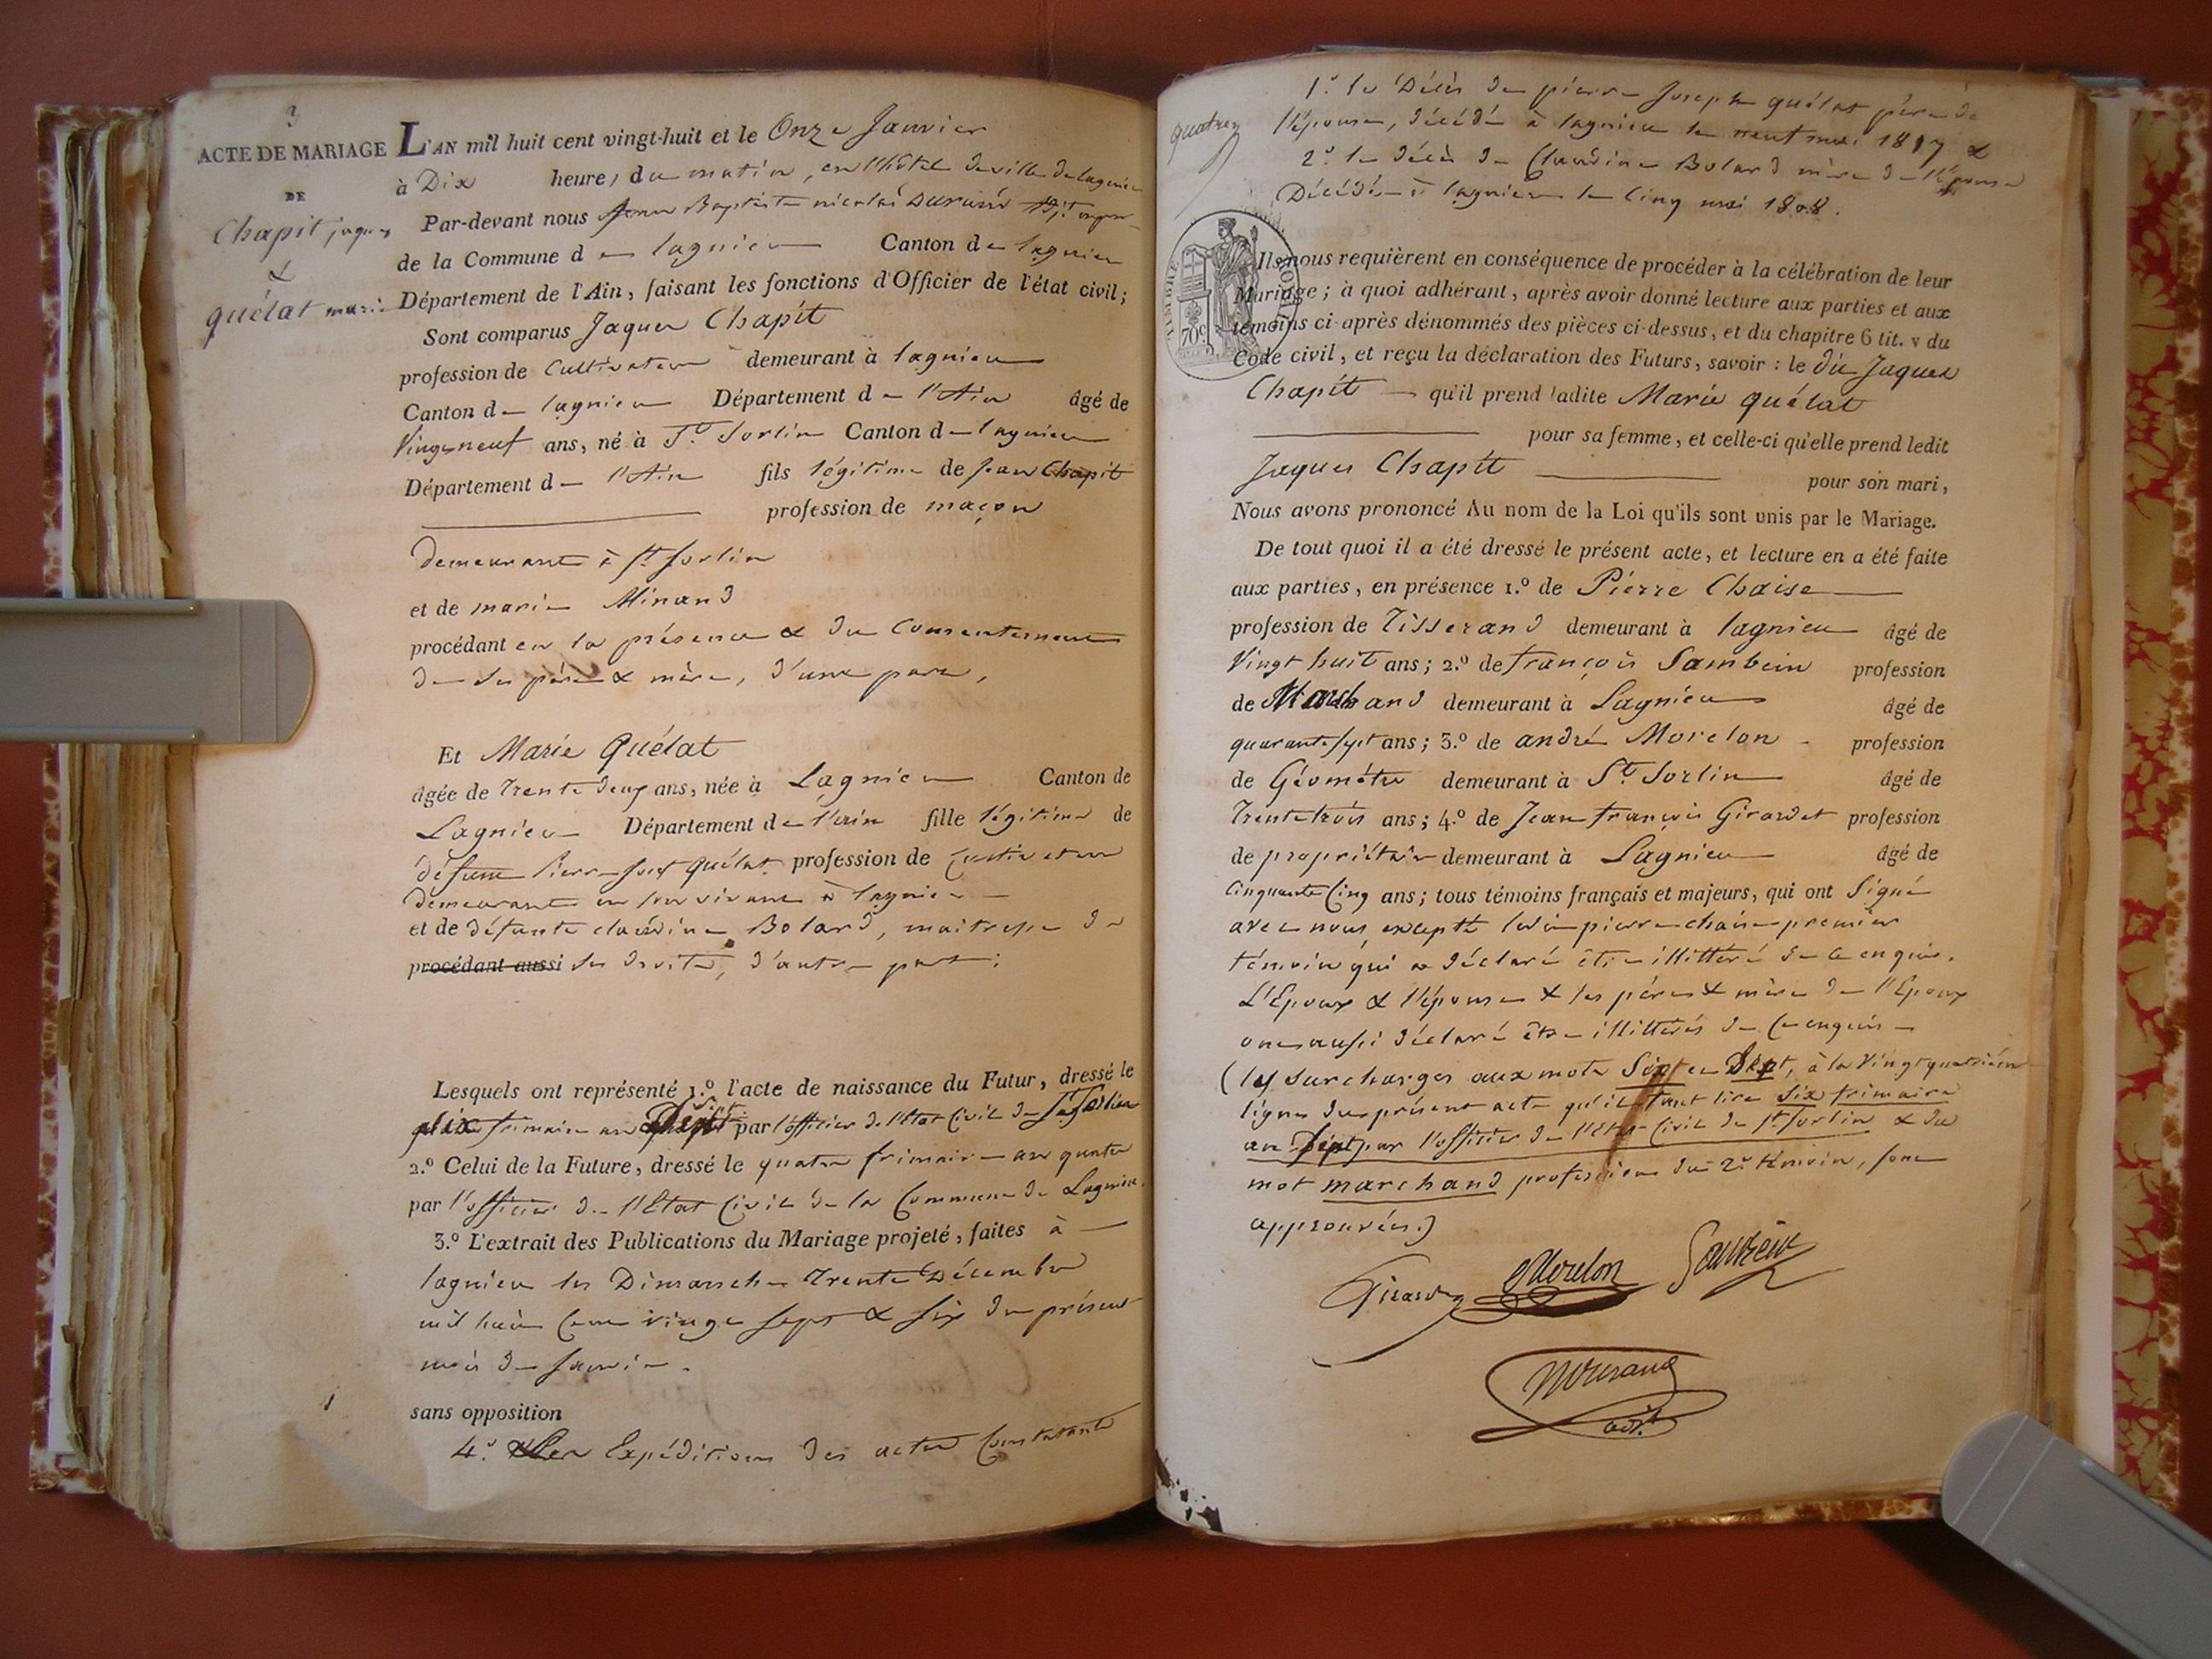 3
ACTE DE MARIAGE
DE
Chapit jaques
&
quélat marie
L'AN mil huit cent vingt-huit et le Onze Janvier
à Dix heures du matin, en l'hôtel de ville de lagnieu
Par-devant nous Jean Baptiste nicolas Durand Adjt
de la Commune de lagnieu Canton de lagnieu
Département de l'Ain, faisant les fonctions d'Officier de l'état civil;
Sont comparus Jaques Chapit
profession de Cultivateur demeurant à lagnieu
Canton de lagnieu Département de l'Ain âgé de
Vingt neuf ans, né à St. Sorlin Canton de lagnieu
Département de l'Ain fils légitime de Jean Chapit
profession de maçon
demeurant à St Sorlin
et de marie Minand
procédant en la présence & du Consentement
de ses père & mère, d'une part,
Et Marie Quélat
âgée de Trente deux ans, née à Lagnieu Canton de
Lagnieu Département de l'ain fille légitime de
défunt Pierre Josef Quélat profession de Cultivateur
demeurant en son vivant à lagnieu
et de défunte claudine Bolard, maitresse de
procédant aussi ses droits, d'autre part;
Lesquels ont représenté 1.º l'acte de naissance du Futur, dressé le
six frimaire an Sept par l'officier de l'Etat Civil de St Sorlin
2.º Celui de la Future, dressé le quatre frimaire an quatre
par l'officier de l'Etat Civil de la Commune de Lagnieu.
3.º L'extrait des Publications du Mariage projeté, faites à
lagnieu les Dimanche Trente Décembre
mil huit Cent vingt sept & six du présent
mois de Janvier.
sans opposition
4.º Les Expéditions des actes Constatant
quatre
1.º le Décès de pierre Joseph quélat père de
l'épouse, décédé à lagnieu le neuf mai 1817 &
2.º le décès de Claudine Bolard mère de l'épouse
Décédée à lagnieu le Cinq mai 1808.
TIMBRE ROYAL
70c
Ils nous requièrent en conséquence de procéder à la célébration de leur
Mariage; à quoi adhérant, après avoir donné lecture aux parties et aux
témoins ci-après dénommés des pièces ci-dessus, et du chapitre 6 tit. v du
Code civil, et reçu la déclaration des Futurs, savoir: le dit Jaques
Chapit qu'il prend ladite Marie quélat
pour sa femme, et celle-ci qu'elle prend ledit
Jaques Chapit pour son mari,
Nous avons prononcé Au nom de la Loi qu'ils sont unis par le Mariage.
De tout quoi il a été dressé le présent acte, et lecture en a été faite
aux parties, en présence 1.º de Pierre Chaise
profession de Tisserand demeurant à lagnieu âgé de
Vingt huit ans; 2.º de françois Sambein profession
de Marchand demeurant à Lagnieu âgé de
quarante sept ans; 3.º de andré Morelon profession
de Géomètre demeurant à St. Sorlin âgé de
Trente trois ans; 4.º de Jean françois Girardet profession
de propriétaire demeurant à Lagnieu âgé de
Cinquante Cinq ans; tous témoins français et majeurs, qui ont Signé
avec nous excepté ledit pierre chaise premier
témoin qui a déclaré être illittéré de ce enquis.
L'Epoux & l'épouse & les père & mère de l'Epoux
ont aussi déclaré être illittérés de Ce enquis
(les surcharges aux mots Six et Sept, à la Vingt quatrième
ligne du présent acte qu'il faut lire Six frimaire
an Sept par l'officier de l'Etat Civil de St Sorlin & du
mot marchand profession du 2e témoin, sont
approuvées.)
Girardet Morelon Sambein
NDurand
adjt